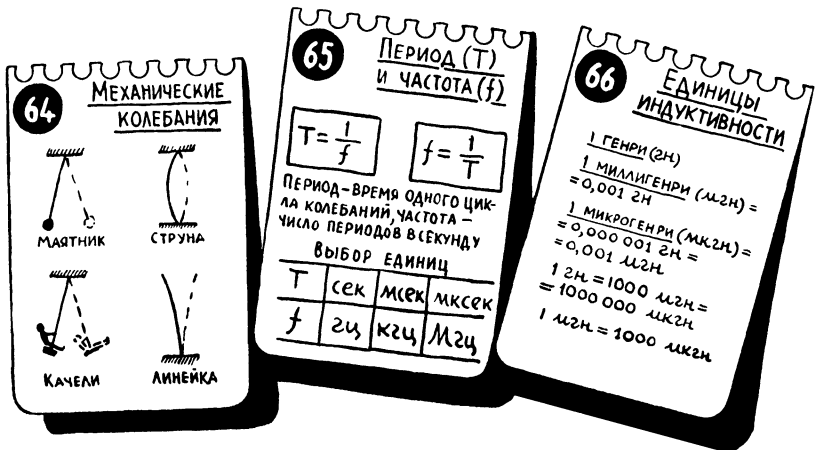 64
МЕХАНИЧЕСКИЕ
КОЛЕБАНИЯ
МАЯТНИК
СТРУНА
КАЧЕЛИ
ЛИНЕЙКА
65
ПЕРИОД (T)
И ЧАСТОТА (f)
T = 1/f
f = 1/T
ПЕРИОД – ВРЕМЯ ОДНОГО ЦИК-
ЛА КОЛЕБАНИЙ, ЧАСТОТА –
ЧИСЛО ПЕРИОДОВ В СЕКУНДУ
ВЫБОР ЕДИНИЦ
T сек мсек мксек
f гц кгц Мгц
66
ЕДИНИЦЫ
ИНДУКТИВНОСТИ
1 ГЕНРИ (гн)
1 МИЛЛИГЕНРИ (мгн) =
= 0,001 гн
1 МИКРОГЕНРИ (мкгн) =
= 0,000 001 гн =
= 0,001 мгн
1 гн = 1000 мгн =
= 1000 000 мкгн
1 мгн = 1000 мкгн